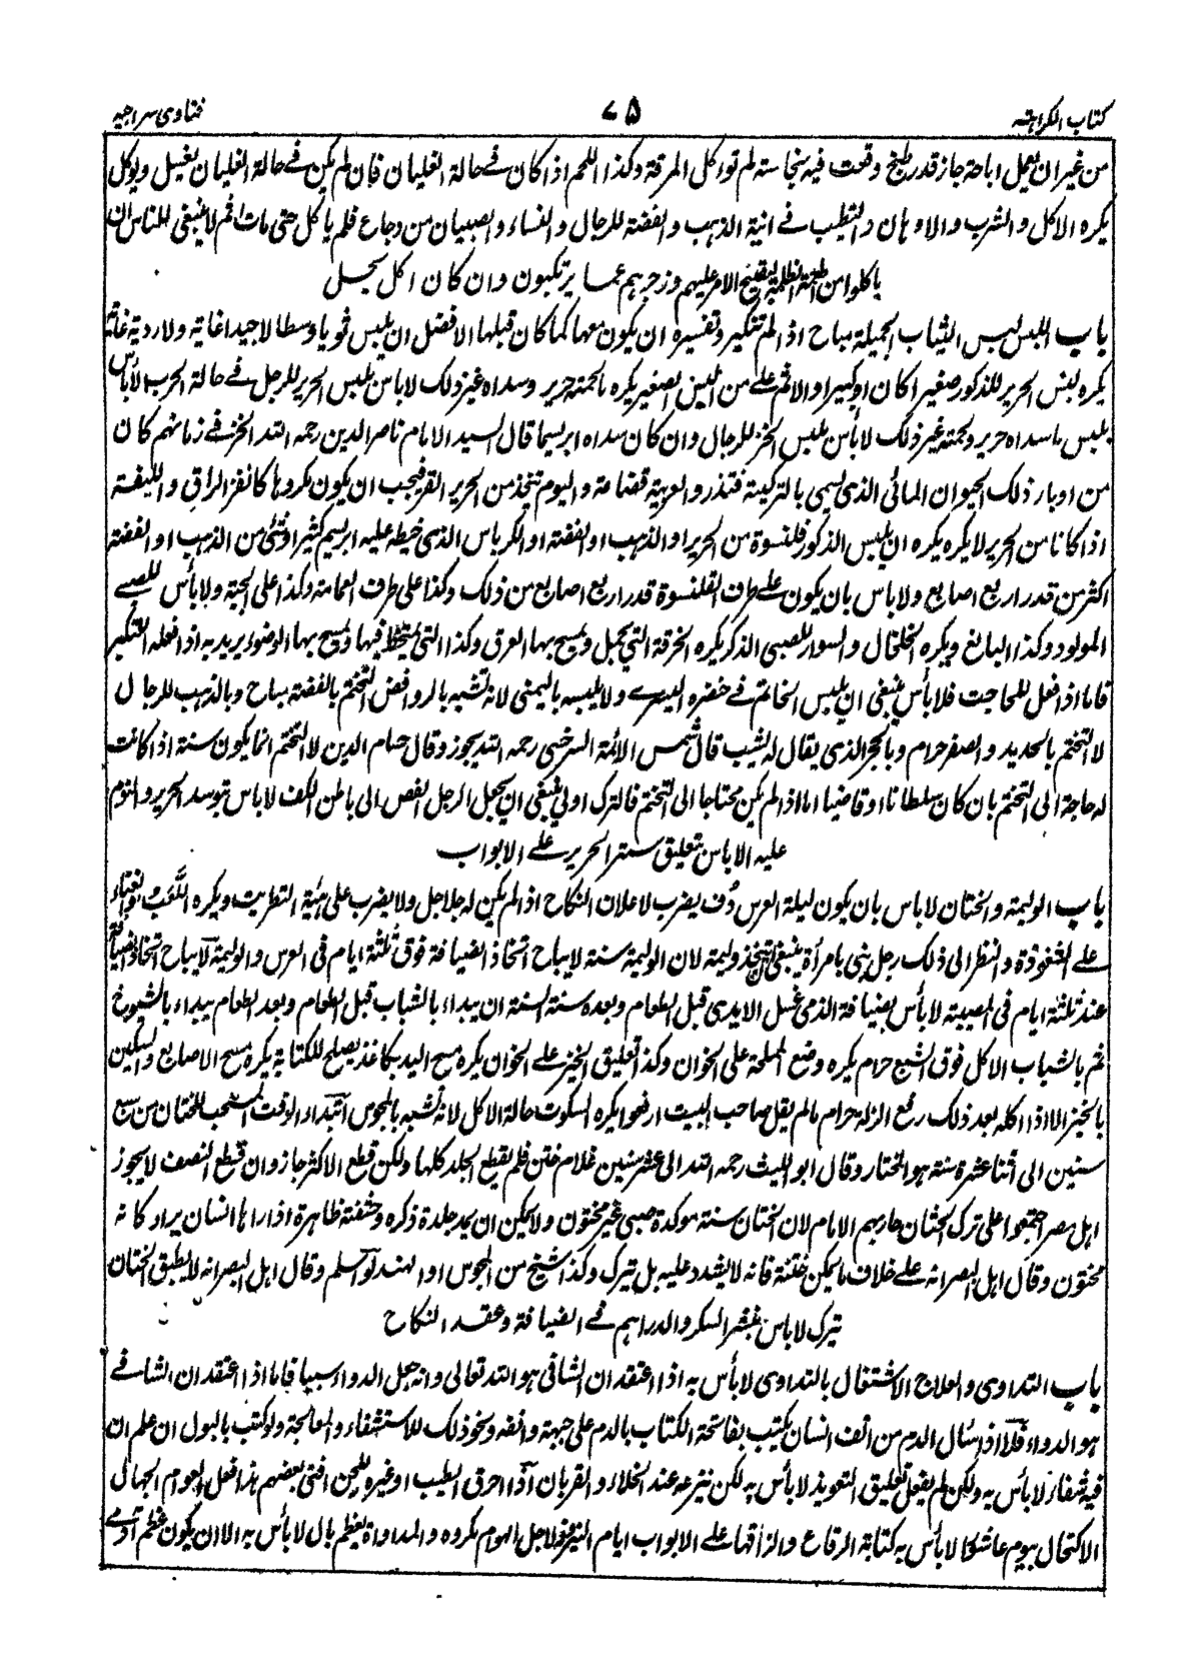 كتاب الكراهته
۷۵
فتاوى سراجيه
من غير ان يجل اباحة جاز قدر طبخ وقعت فيه نجاسته لم توكل المرقة وكذا اللحم اذا كان فے حالة الغليان فان لم يكن فے حالة الغليان يغسل ويوكل
يكره الاكل والشرب والادهان والتطيب فے انية الذهب والفضة للرجال والنساء والصبيان من وجاع فلم ياكل حتى مات اثم لا ينبغى للناس ان
ياكلوا من اطعمة الظلمة لتقبيح الامر عليهم وزجرهم عما يرتكبون وان كان اكل يحل
باب اللبس لبس الثياب الجميلة مباح اذا لم تتكبر وتفسيره ان يكون معها كما كان قبلها الافضل ان يلبس ثوبا وسطا لا جيدا غاية ولا ردية غاية
يكره لبس الحرير للذكور صغيرا كان او كبيرا والاثم علے من البس الصغير يكره ما لحمته حرير وسداه غير ذلك لا باس بلبس الحرير للرجل فے حالة الحرب لا بأس
بلبس ما سداه حرير ولحمته غير ذلك لا بأس بلبس الخز للرجال وان كان سداه ابريسما قال السيد الامام ناصر الدين رحمه الله الخز فے زمانهم كان
من اوبار ذلك الحيوان المائى الذى يسمى بالتركية قندز وبالعربية قضاعة واليوم تتخذ من الحرير القز فيجب ان يكون مكروها كالقز الراق والليفة
اذا كانا من الحرير لا يكره يكره ان يلبس الذكور قلنسوة من الحرير او الذهب او الفضة او الكرباس الذى خيط عليه ابريسم كثير او شئ من الذهب او الفضة
اكثر من قدر اربع اصابع ولا باس بان يكون علے طرف القلنسوة قدر اربع اصابع من ذلك وكذا على طرف العمامة وكذا على الجبة ولا بأس للصبے
المولود وكذا البالغ ويكره الخلخال والسوار للصبى الذكر يكره الخرقة التى تحمل ويمسح بها العرق وكذا التى يمتخط فيها ويمسح بها الوضوء يريد به اذا فعله للتكبر
فاما اذا فعل للحاجت فلا بأس ينبغى ان يلبس الخاتم فے خنصره اليسرے ولا يلبسه باليمنى لانه تشبه بالروافض التختم بالفضة مباح وبالذهب للرجال
لا التختم بالحديد والصفر حرام وبالحجر الذى يقال له يشب قال شمس الائمة السرخسى رحمه الله يجوز وقال حسام الدين لا التختم انما يكون سنة اذا كانت
له حاجة الى التختم بان كان سلطانا او قاضيا اما اذا لم يكن محتاجا الى التختم فالترك اولى ينبغى ان يجعل الرجل الفص الى باطن الكف لا باس بتوسد الحرير والنوم
عليه الا باس بتعليق ستر الحرير علے الابواب
باب الوليمة والختان لا باس بان يكون ليلة العرس دُف يضرب لاعلان النكاح اذا لم يكن له جلاجل ولا يضرب على هيئة التطريب ويكره اللعب
علے الشعوذة والنظر الى ذلك رجل بنى بامرأة ينبغى ان يتخذ وليمة لان الوليمة سنة لا يباح اتخاذ الضيافة فوق ثلثة ايام فى العرس والوليمة لا يباح اتخاذ الضيافة
عند ثلثة ايام فى المصيبة لا بأس بضيافة الذمى غسل الايدى قبل الطعام وبعده سنة السنة ان يبداء بالشباب قبل الطعام وبعد الطعام يبداء بالشيوخ
ثم بالشباب الاكل فوق الشبع حرام يكره وضع المملحة على الخوان وكذا تعليق الخبز علے الخوان يكره مسح اليد بكاغذ يصلح للكتابة يكره مسح الاصابع والسكين
بالخبز الا اذا اكله بعد ذلك رفع الزلة حرام ما لم يقل صاحب البيت ارفعوا يكره السكوت حالة الاكل لانه تشبه بالمجوس ابتداء الوقت المستحب للختان من سبع
سنين الى اثنا عشرة سنة هو المختار وقال ابو الليث رحمه الله الى عشر سنين غلام ختن فلم يقطع الجلد كلها ولكن قطع الاكثر جاز وان قطع النصف لا يجوز
اهل مصر اجتمعوا على ترك الختان حاربهم الامام لان الختان سنة موكدة صبى غير مختون ولا يمكن ان يمد جلدة ذكره وحشفته ظاهرة اذا راها انسان يراه كانه
مختون وقال اهل البصر انه علے خلاف ما يمكن ختنة فانه لا يشدد عليه بل يترك وكذا شيخ من المجوس او الهند لو اسلم وقال اهل البصر انه لا يطيق الختان
يترك لا باس بنثر السكر والدراهم فے الضيافة وعقد النكاح
باب التداوى والعلاج الاشتغال بالتداوى لا بأس به اذا اعتقد ان الشافى هو الله تعالى وانه جعل الدواء سببا فاما اذا اعتقد ان الشافے
هو الدواء فلا اذا سال الدم من انف انسان يكتب بفاتحة الكتاب بالدم على جبهته وانفه ونحو ذلك للاستشفاء والمعالجة ولو كتب بالبول ان علم ان
فيه شفاء لا بأس به ولكن لم يفعل تعليق التعويذ لا بأس به لكن نيزعه عند الخلاء والقربان اذا احرق الطيب او غيره للجن افتى بعضهم هذا فعل العوام الجهال
الاكتحال بيوم عاشورا لا بأس به كتابة الرقاع والزاقها علے الابواب ايام النيروز لاجل الهوام مكروه والمداواة بعظم بال لا بأس به الا ان يكون عظم آدمے